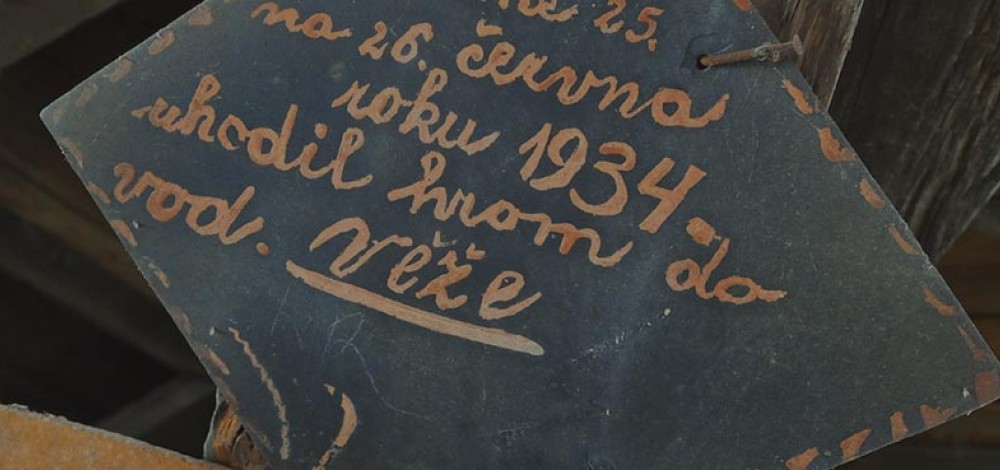 25.
na 26. června
roku 1934
uhodil hrom do
vod. Věže